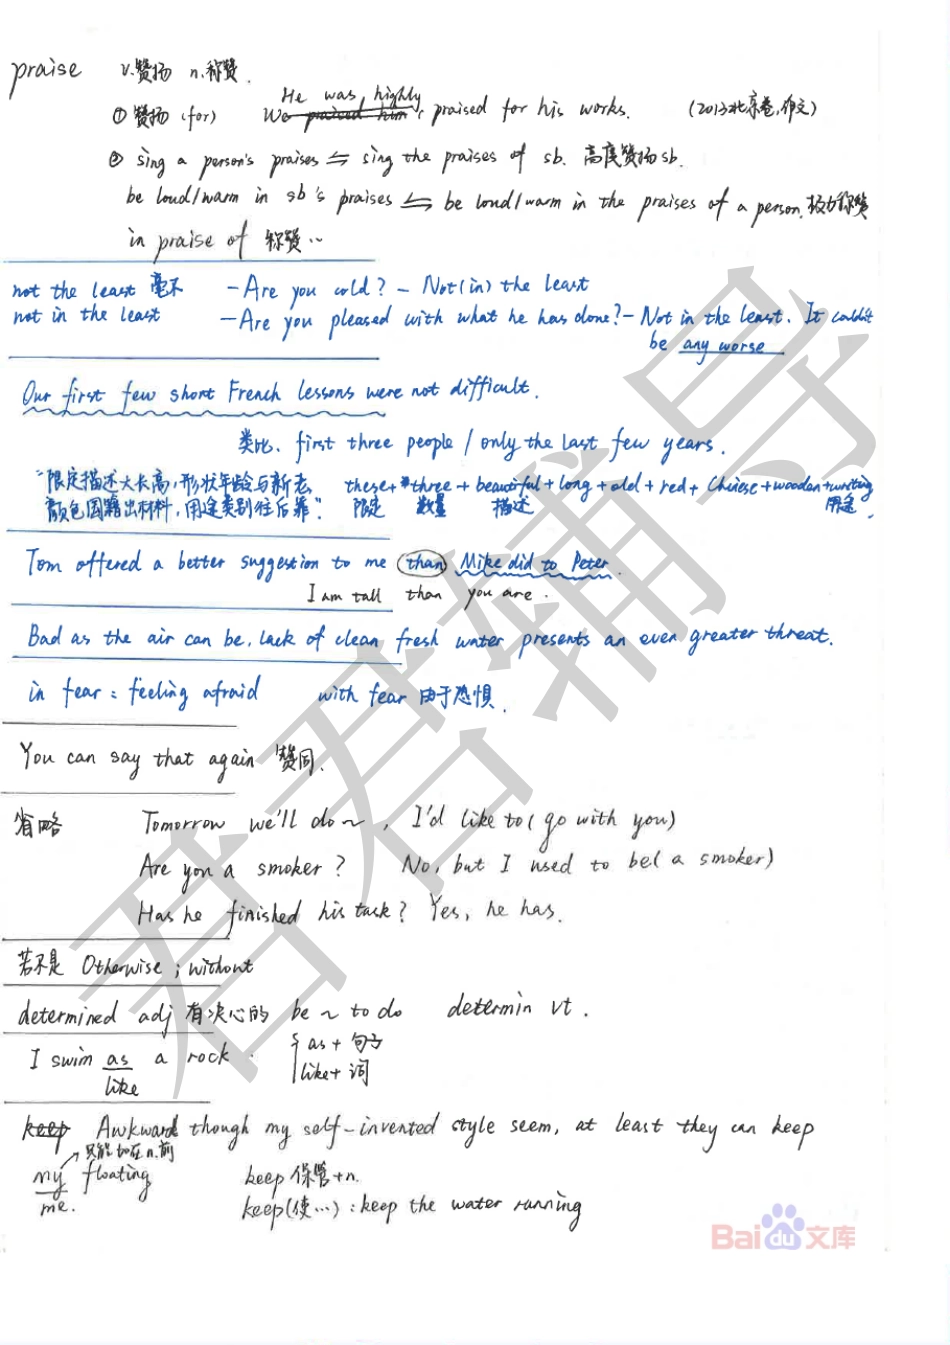 praise v.赞扬 n.称赞.
He was highly
① 赞扬 (for) We praised him praised for his works. (2013北京卷,作文)
② sing a person's praises ⇋ sing the praises of sb. 高度赞扬sb.
be loud/warm in sb's praises ⇋ be loud/warm in the praises of a person. 极力称赞
in praise of 称赞…
not the least 毫不 - Are you cold? - Not (in) the least
not in the least - Are you pleased with what he has done? - Not in the least. It couldn't
be any worse
Our first few short French lessons were not difficult.
类比. first three people / only the last few years.
"限定描述大长高,形状年龄与新老 these + three + beautiful + long + old + red + Chinese + wooden + writing
颜色国籍出材料,用途类别往后靠". 限定 数量 描述 用途.
Tom offered a better suggestion to me than Mike did to Peter.
I am tall than you are.
Bad as the air can be, lack of clean fresh water presents an even greater threat.
in fear = feeling afraid with fear 由于恐惧.
You can say that again 赞同.
省略 Tomorrow we'll do ~, I'd like to ( go with you)
Are you a smoker? No, but I used to be( a smoker)
Has he finished his task? Yes, he has.
若不是 Otherwise ; without
determined adj 有决心的 be ~ to do determin vt.
I swim as a rock. as + 句子
like like + 词
keep Awkward though my self-invented style seem, at least they can keep
只能加在n.前
my floating keep 保管+n.
me. keep(使…) : keep the water running
Bai du 文库
君君辅导